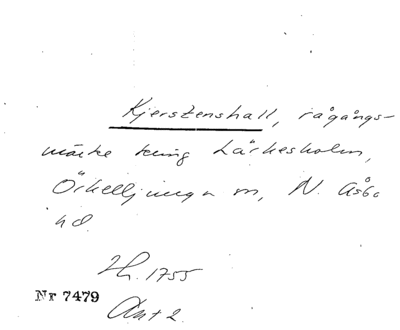 Kjerstenshall, rågångs-
märke kring Lärkesholm,
Örkelljunga sn, N. Åsbo
hd
Lh. 1755
Nr 7479
Ant 2